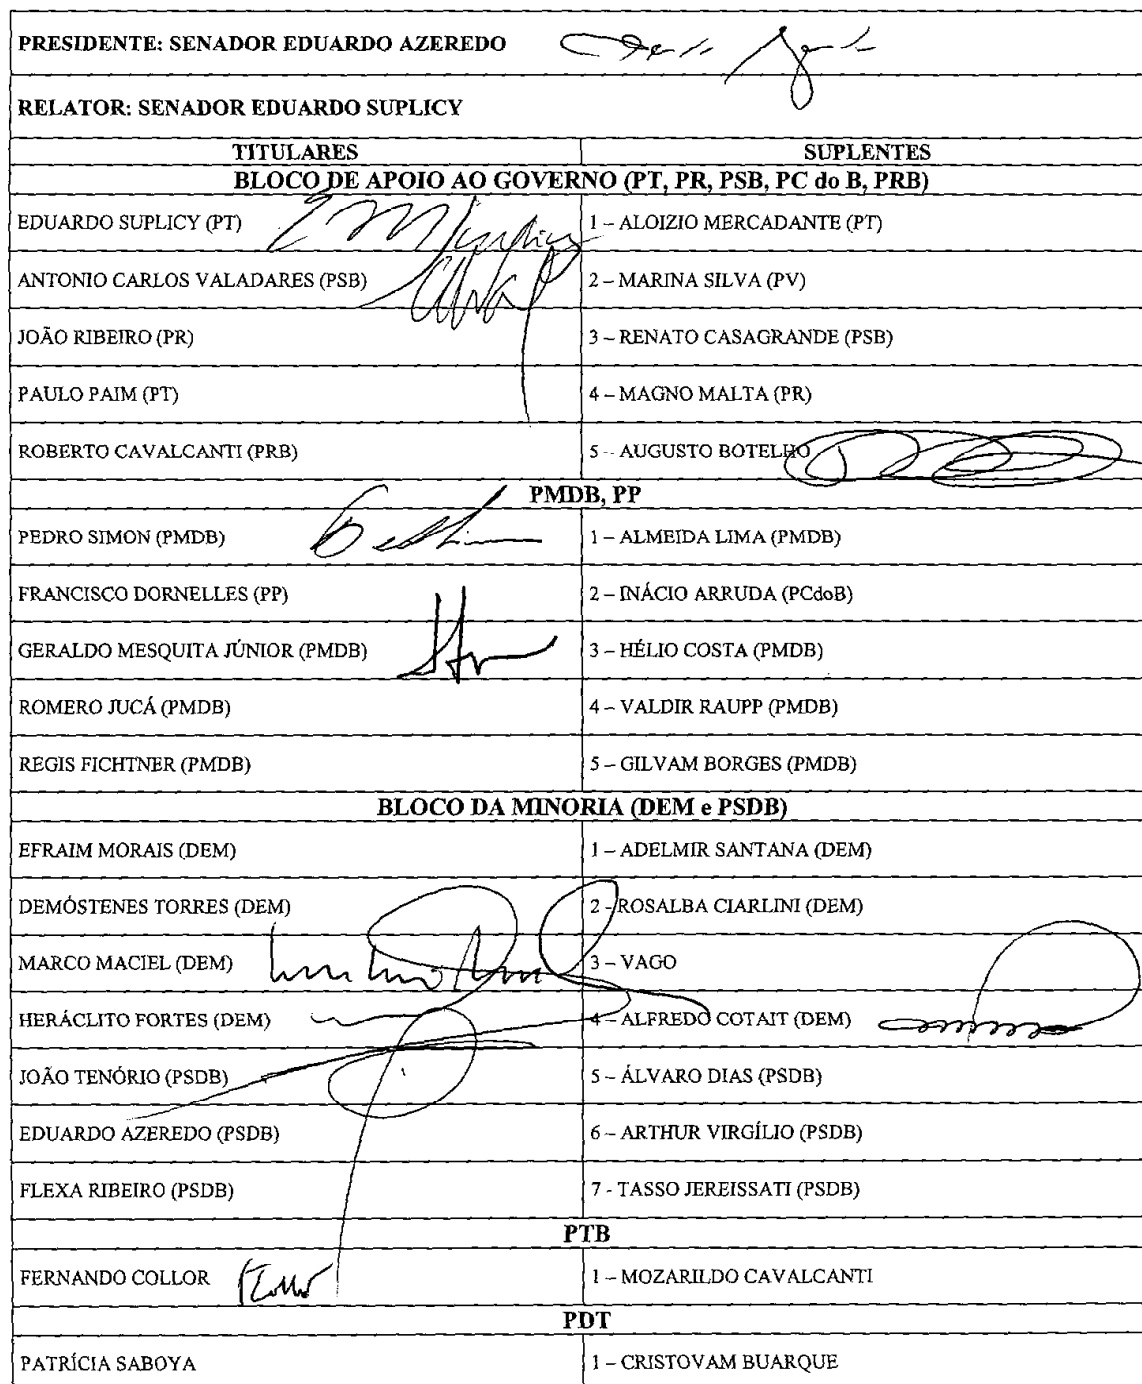 PRESIDENTE: SENADOR EDUARDO AZEREDO
RELATOR: SENADOR EDUARDO SUPLICY
TITULARES SUPLENTES
BLOCO DE APOIO AO GOVERNO (PT, PR, PSB, PC do B, PRB)
EDUARDO SUPLICY (PT) 1 – ALOIZIO MERCADANTE (PT)
ANTONIO CARLOS VALADARES (PSB) 2 – MARINA SILVA (PV)
JOÃO RIBEIRO (PR) 3 – RENATO CASAGRANDE (PSB)
PAULO PAIM (PT) 4 – MAGNO MALTA (PR)
ROBERTO CAVALCANTI (PRB) 5 – AUGUSTO BOTELHO
PMDB, PP
PEDRO SIMON (PMDB) 1 – ALMEIDA LIMA (PMDB)
FRANCISCO DORNELLES (PP) 2 – INÁCIO ARRUDA (PCdoB)
GERALDO MESQUITA JÚNIOR (PMDB) 3 – HÉLIO COSTA (PMDB)
ROMERO JUCÁ (PMDB) 4 – VALDIR RAUPP (PMDB)
REGIS FICHTNER (PMDB) 5 – GILVAM BORGES (PMDB)
BLOCO DA MINORIA (DEM e PSDB)
EFRAIM MORAIS (DEM) 1 – ADELMIR SANTANA (DEM)
DEMÓSTENES TORRES (DEM) 2 - ROSALBA CIARLINI (DEM)
MARCO MACIEL (DEM) 3 – VAGO
HERÁCLITO FORTES (DEM) 4 – ALFREDO COTAIT (DEM)
JOÃO TENÓRIO (PSDB) 5 – ÁLVARO DIAS (PSDB)
EDUARDO AZEREDO (PSDB) 6 – ARTHUR VIRGÍLIO (PSDB)
FLEXA RIBEIRO (PSDB) 7 - TASSO JEREISSATI (PSDB)
PTB
FERNANDO COLLOR 1 – MOZARILDO CAVALCANTI
PDT
PATRÍCIA SABOYA 1 – CRISTOVAM BUARQUE